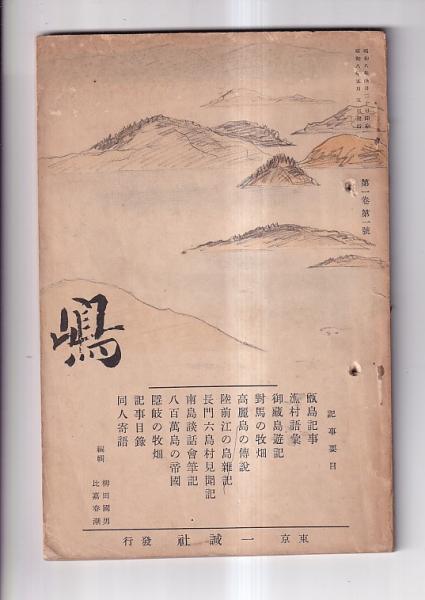 第一卷第一號
嶋
記事要目
甑島記事
漁村語彙
御藏島遊記
對馬の牧畑
高麗島の傳說
陸前江の島雜記
長門六島村見聞記
南島談話會筆記
八百萬島の帝國
隱岐の牧畑
記事目錄
同人寄語
編輯 柳田國男
比嘉春潮
東京 一誠社 發行